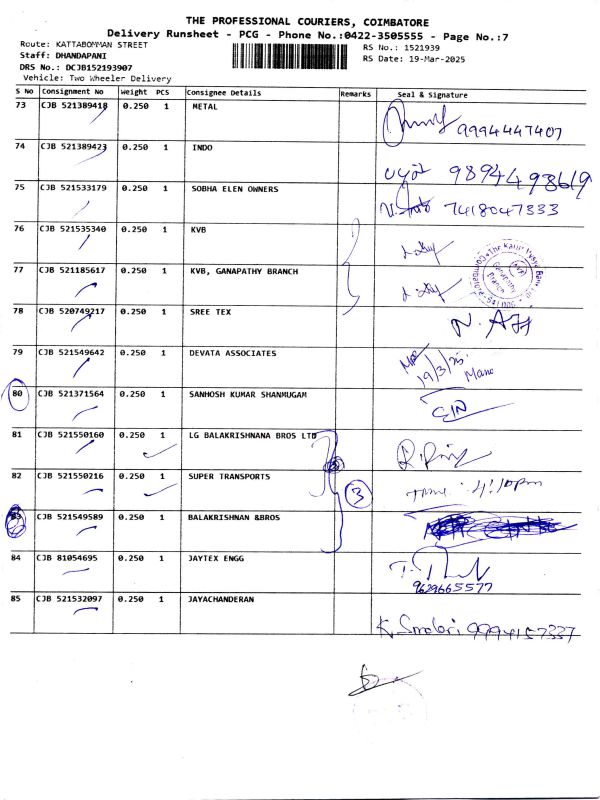 THE PROFESSIONAL COURIERS, COIMBATORE
Delivery Runsheet - PCG - Phone No.:0422-3505555 - Page No.:7
Route: KATTABOMMAN STREET
RS No.: 1521939
Staff: DHANDAPANI
RS Date: 19-Mar-2025
DRS No.: DCJB152193907
Vehicle: Two Wheeler Delivery
S No Consignment No Weight PCS Consignee Details Remarks Seal & Signature
73 CJB 521389418 0.250 1 METAL
9994447407
74 CJB 521389423 0.250 1 INDO
9894498619
75 CJB 521533179 0.250 1 SOBHA ELEN OWNERS
7418047333
76 CJB 521535340 0.250 1 KVB
77 CJB 521185617 0.250 1 KVB, GANAPATHY BRANCH
78 CJB 520749217 0.250 1 SREE TEX
79 CJB 521549642 0.250 1 DEVATA ASSOCIATES
19/3/25
80 CJB 521371564 0.250 1 SANHOSH KUMAR SHANMUGAM
81 CJB 521550160 0.250 1 LG BALAKRISHNANA BROS LTD
82 CJB 521550216 0.250 1 SUPER TRANSPORTS
3
83 CJB 521549589 0.250 1 BALAKRISHNAN &BROS
84 CJB 81054695 0.250 1 JAYTEX ENGG
9629665577
85 CJB 521532097 0.250 1 JAYACHANDERAN
9994157337